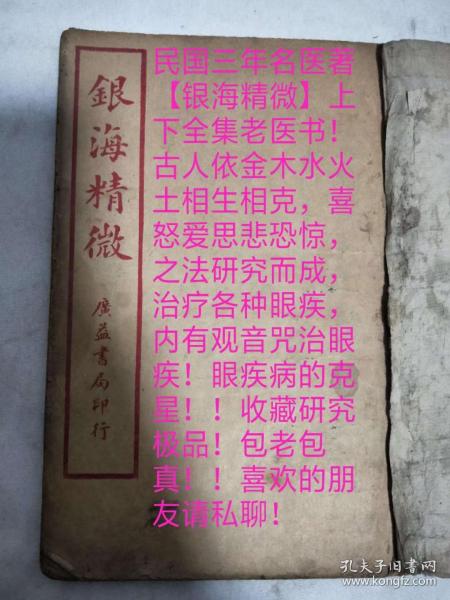 銀海精微
廣益書局印行
民国三年名医著
【银海精微】上
下全集老医书！
古人依金木水火
土相生相克，喜
怒爱思悲恐惊，
之法研究而成，
治疗各种眼疾，
内有观音咒治眼
疾！眼疾病的克
星！！收藏研究
极品！包老包
真！！喜欢的朋
友请私聊！
孔夫子旧书网
www.kongfz.com